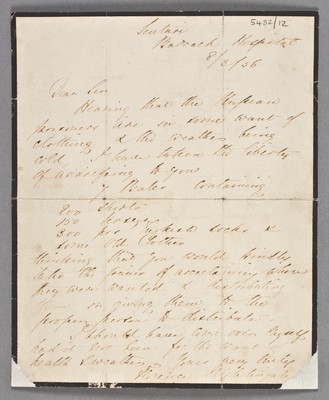 5482/12
Scutari
Barrack Hospital
8/3/56
Dear Sir
Hearing that the Russian
prisoners are in some want of
clothing & the weather being
cold, I have taken the liberty
of addressing to you
7 Bales containing
200 Shirts
150
300 prs socks &
some Old Clothes
thinking that you would kindly
take the trouble of ascertaining where
they were wanted & distributing
or giving them to the
proper person to distribute.
I should have gone over myself
had it not been for the want of
health & weather. Yours very truly
Florence Nightingale